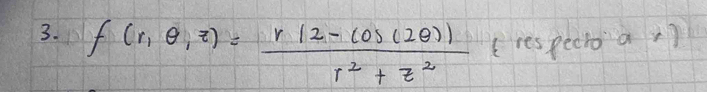 3. f(r, θ, z) = r(2 - cos(2θ)) / r² + z² (respecto a r)